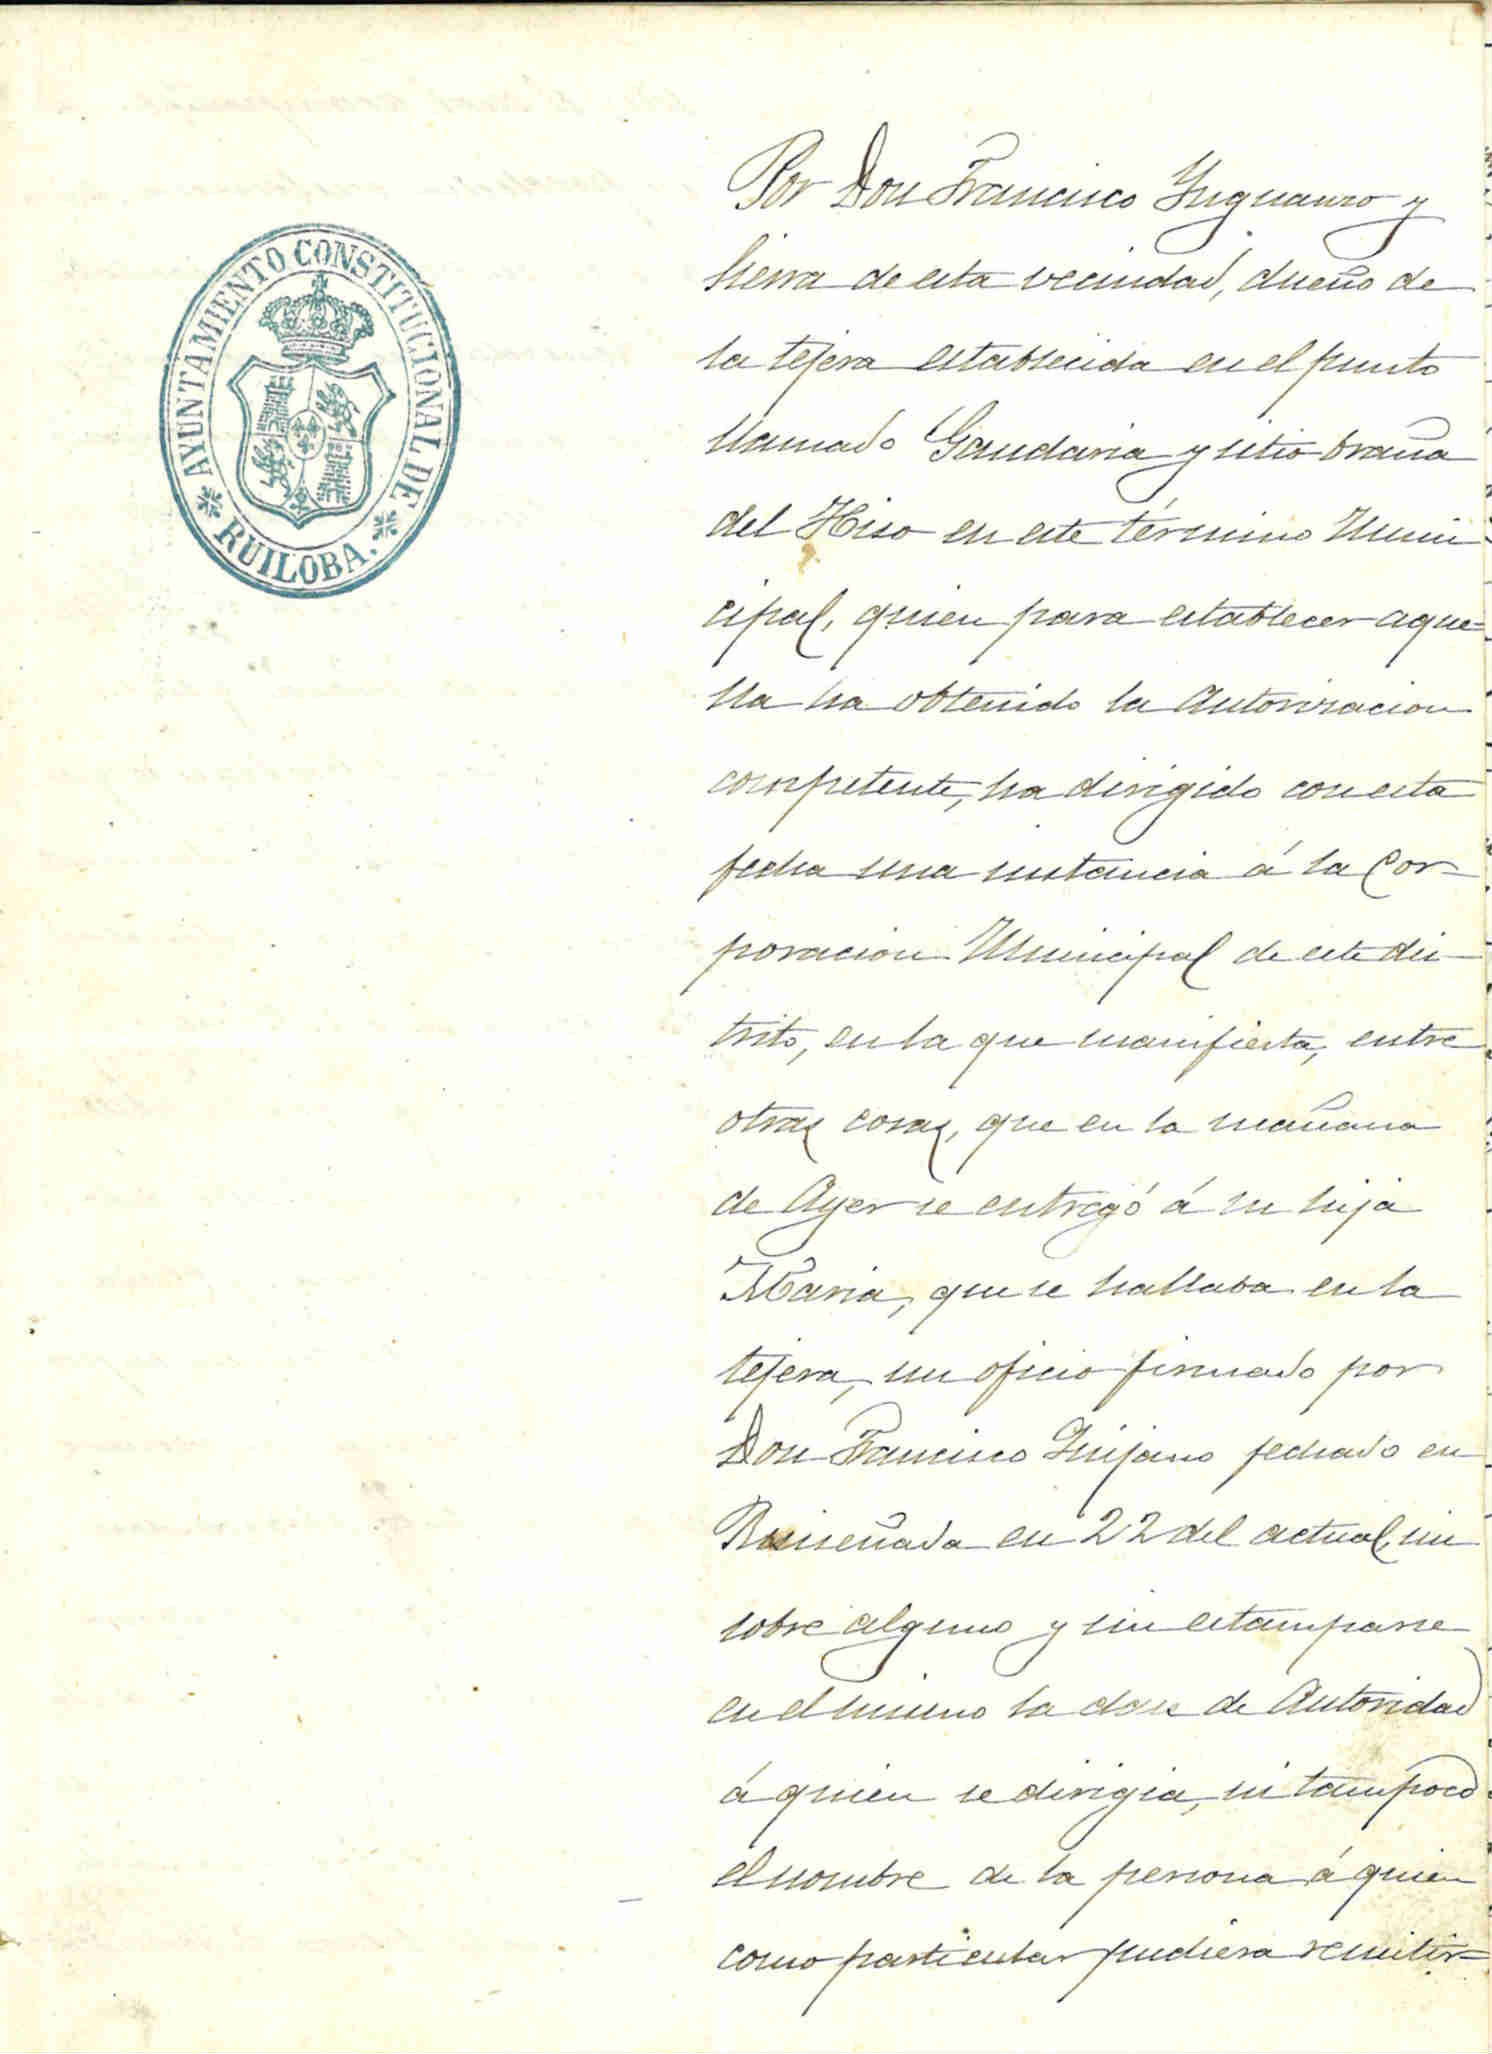 AYUNTAMIENTO CONSTITUCIONAL DE
RUILOBA.
Por Don Francisco Inguanzo y
Sierra de esta vecindad, dueño de
la tejera establecida en el punto
llamado Gandaria y sitio braña
del Hiso en este término Muni
cipal, quien para establecer aque=
lla ha obtenido la Autorizacion
competente, ha dirigido con esta
fecha una instancia á la Cor-
poracion Municipal de este dis-
trito, en la que manifiesta, entre
otras cosas, que en la mañana
de Ayer se entregó á su hija
Maria, que se hallaba en la
tejera, un oficio firmado por
Don Francisco Quijano fechado en
Ruiseñada en 22 del actual, sin
sobre alguno y sin estamparse
en el mismo la clase de Autoridad
á quien se dirigia, ni tampoco
el nombre de la persona á quien
como particular pudiera remitir=